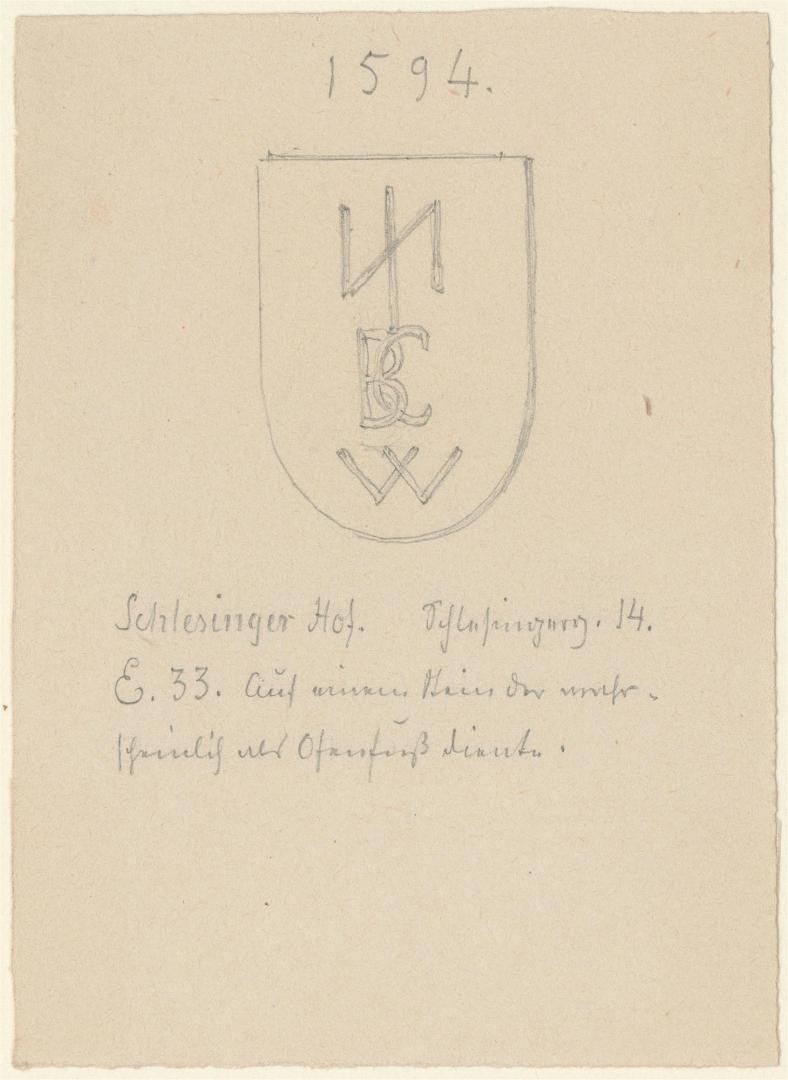 1594.
BC
W
Schlesinger Hof. Schlesingerg. 14.
E. 33. Auf einem Stein der wahr-
scheinlich als Ofenfuß diente.